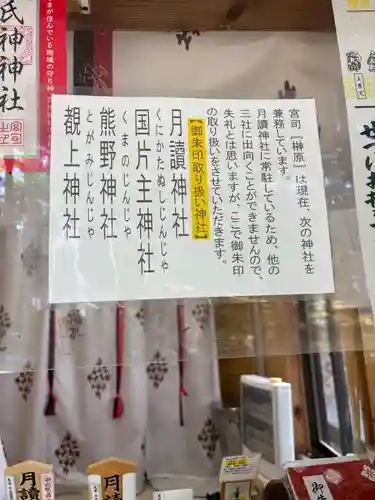 宮司『榊原』は現在、次の神社を
兼務しています。
月讀神社に常駐しているため、他の
三社に出向くことができませんので、
失礼とは思いますが、ここで御朱印
の取り扱いをさせていただきます。
【御朱印取り扱い神社】
月讀神社
くにかたぬしじんじゃ
国片主神社
くまのじんじゃ
熊野神社
とがみじんじゃ
覩上神社
氏神神社
月讀
月讀
御朱